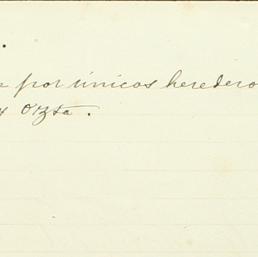 por únicos heredero
Orzta.